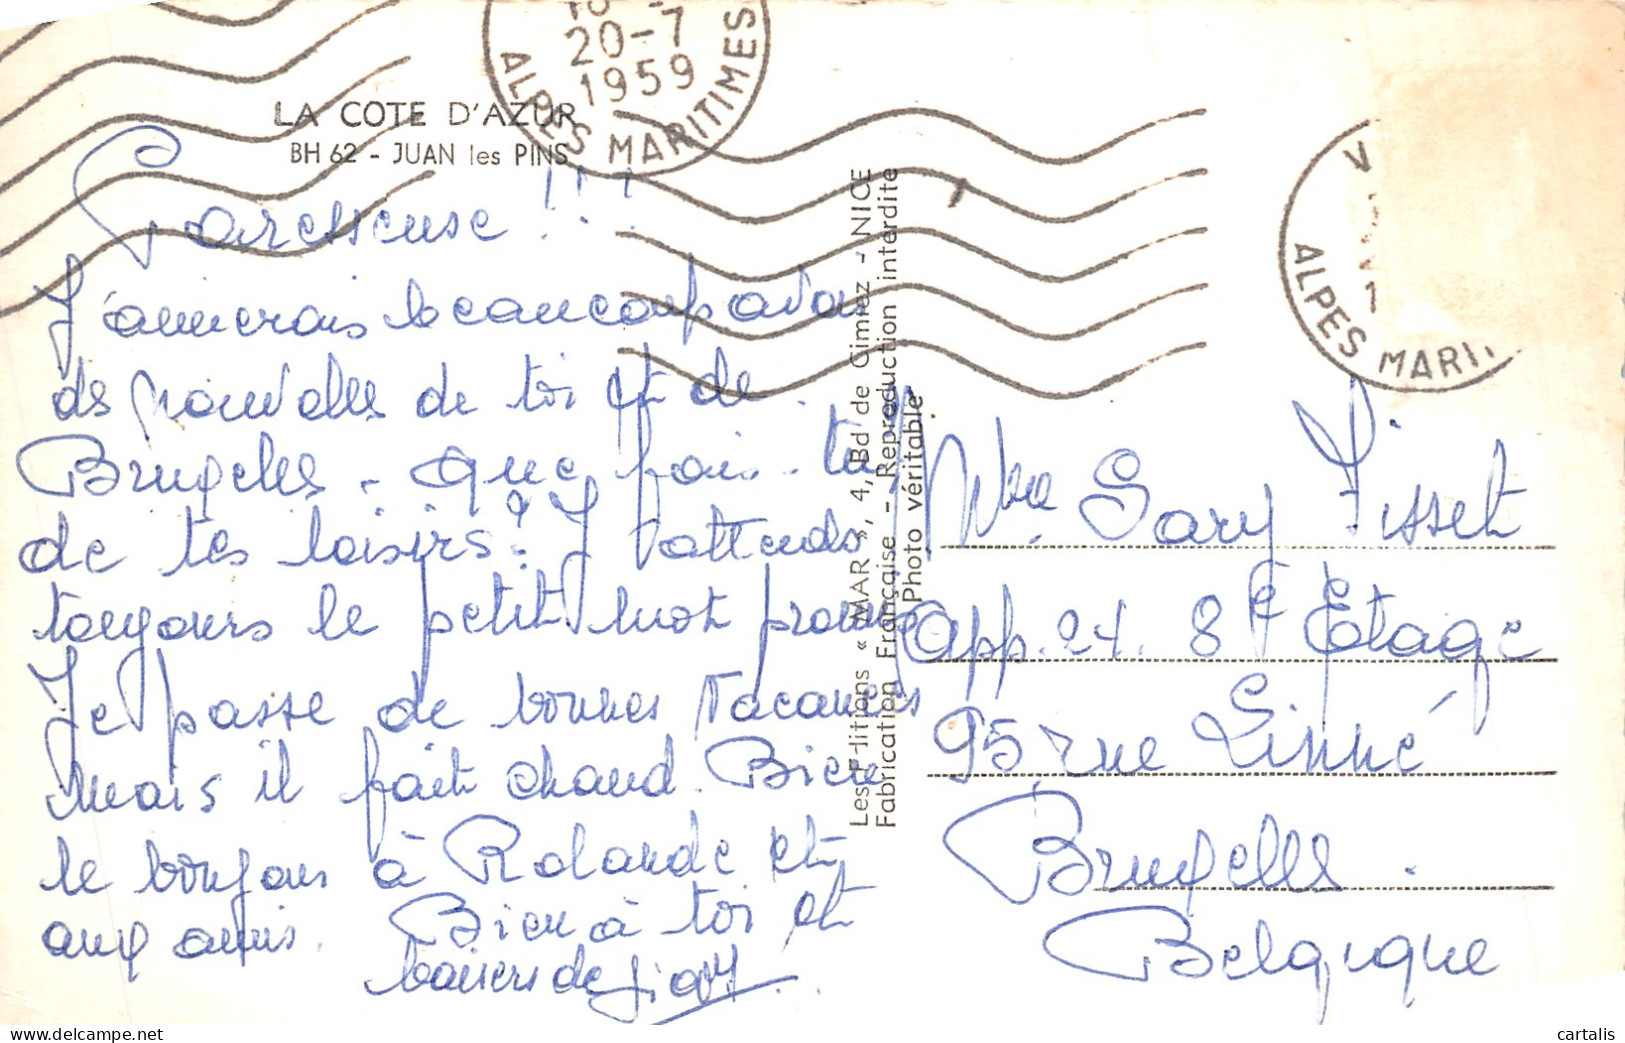 20-7
1959
ALPES MARITIMES
LA COTE D'AZUR
BH 62 - JUAN les PINS
Paresseuse !!!
J'aimerais beaucoup avoir
de nouvelles de toi et de
Bruxelles - que fais-tu
de tes loisirs? J'attends
toujours le petit mot promis
Je passe de bonnes Vacances
mais il fait chaud. Bien
le bonjour à Rolande et
aux amis. Bien à toi et
baisers de
Les Editions « MAR », 4, Bd de Cimiez - NICE
Fabrication Française - Reproduction interdite
Photo véritable
ALPES MARI
Gary Fisset
App. 24. 8e Etage
95 rue Linné
Bruxelles.
Belgique
cartalis